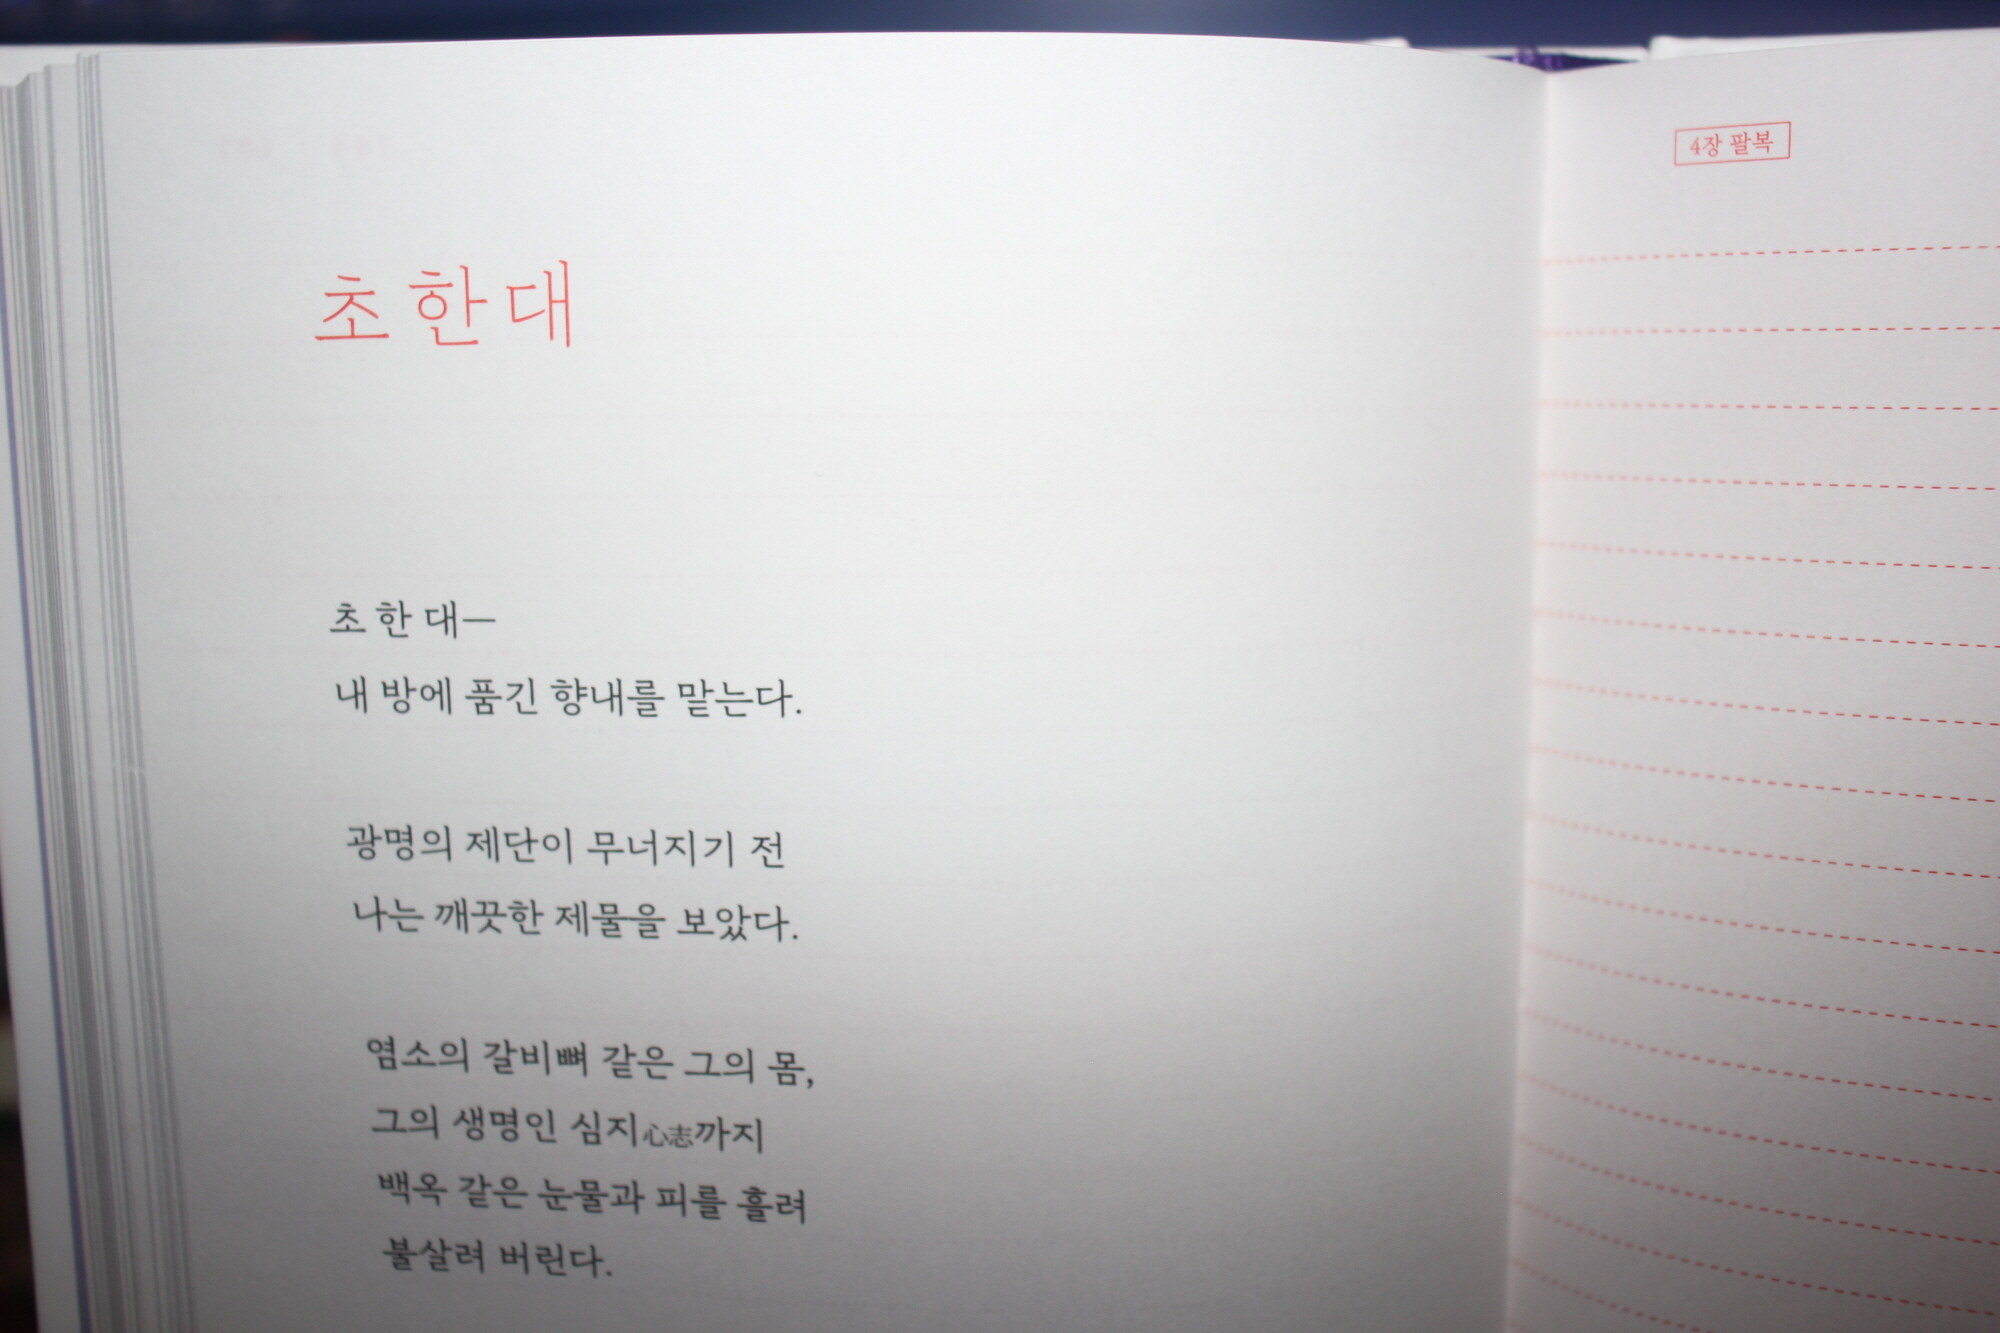 초 한 대
초 한 대—
내 방에 품긴 향내를 맡는다.
광명의 제단이 무너지기 전
나는 깨끗한 제물을 보았다.
염소의 갈비뼈 같은 그의 몸,
그의 생명인 심지心志까지
백옥 같은 눈물과 피를 흘려
불살려 버린다.
4장 팔복